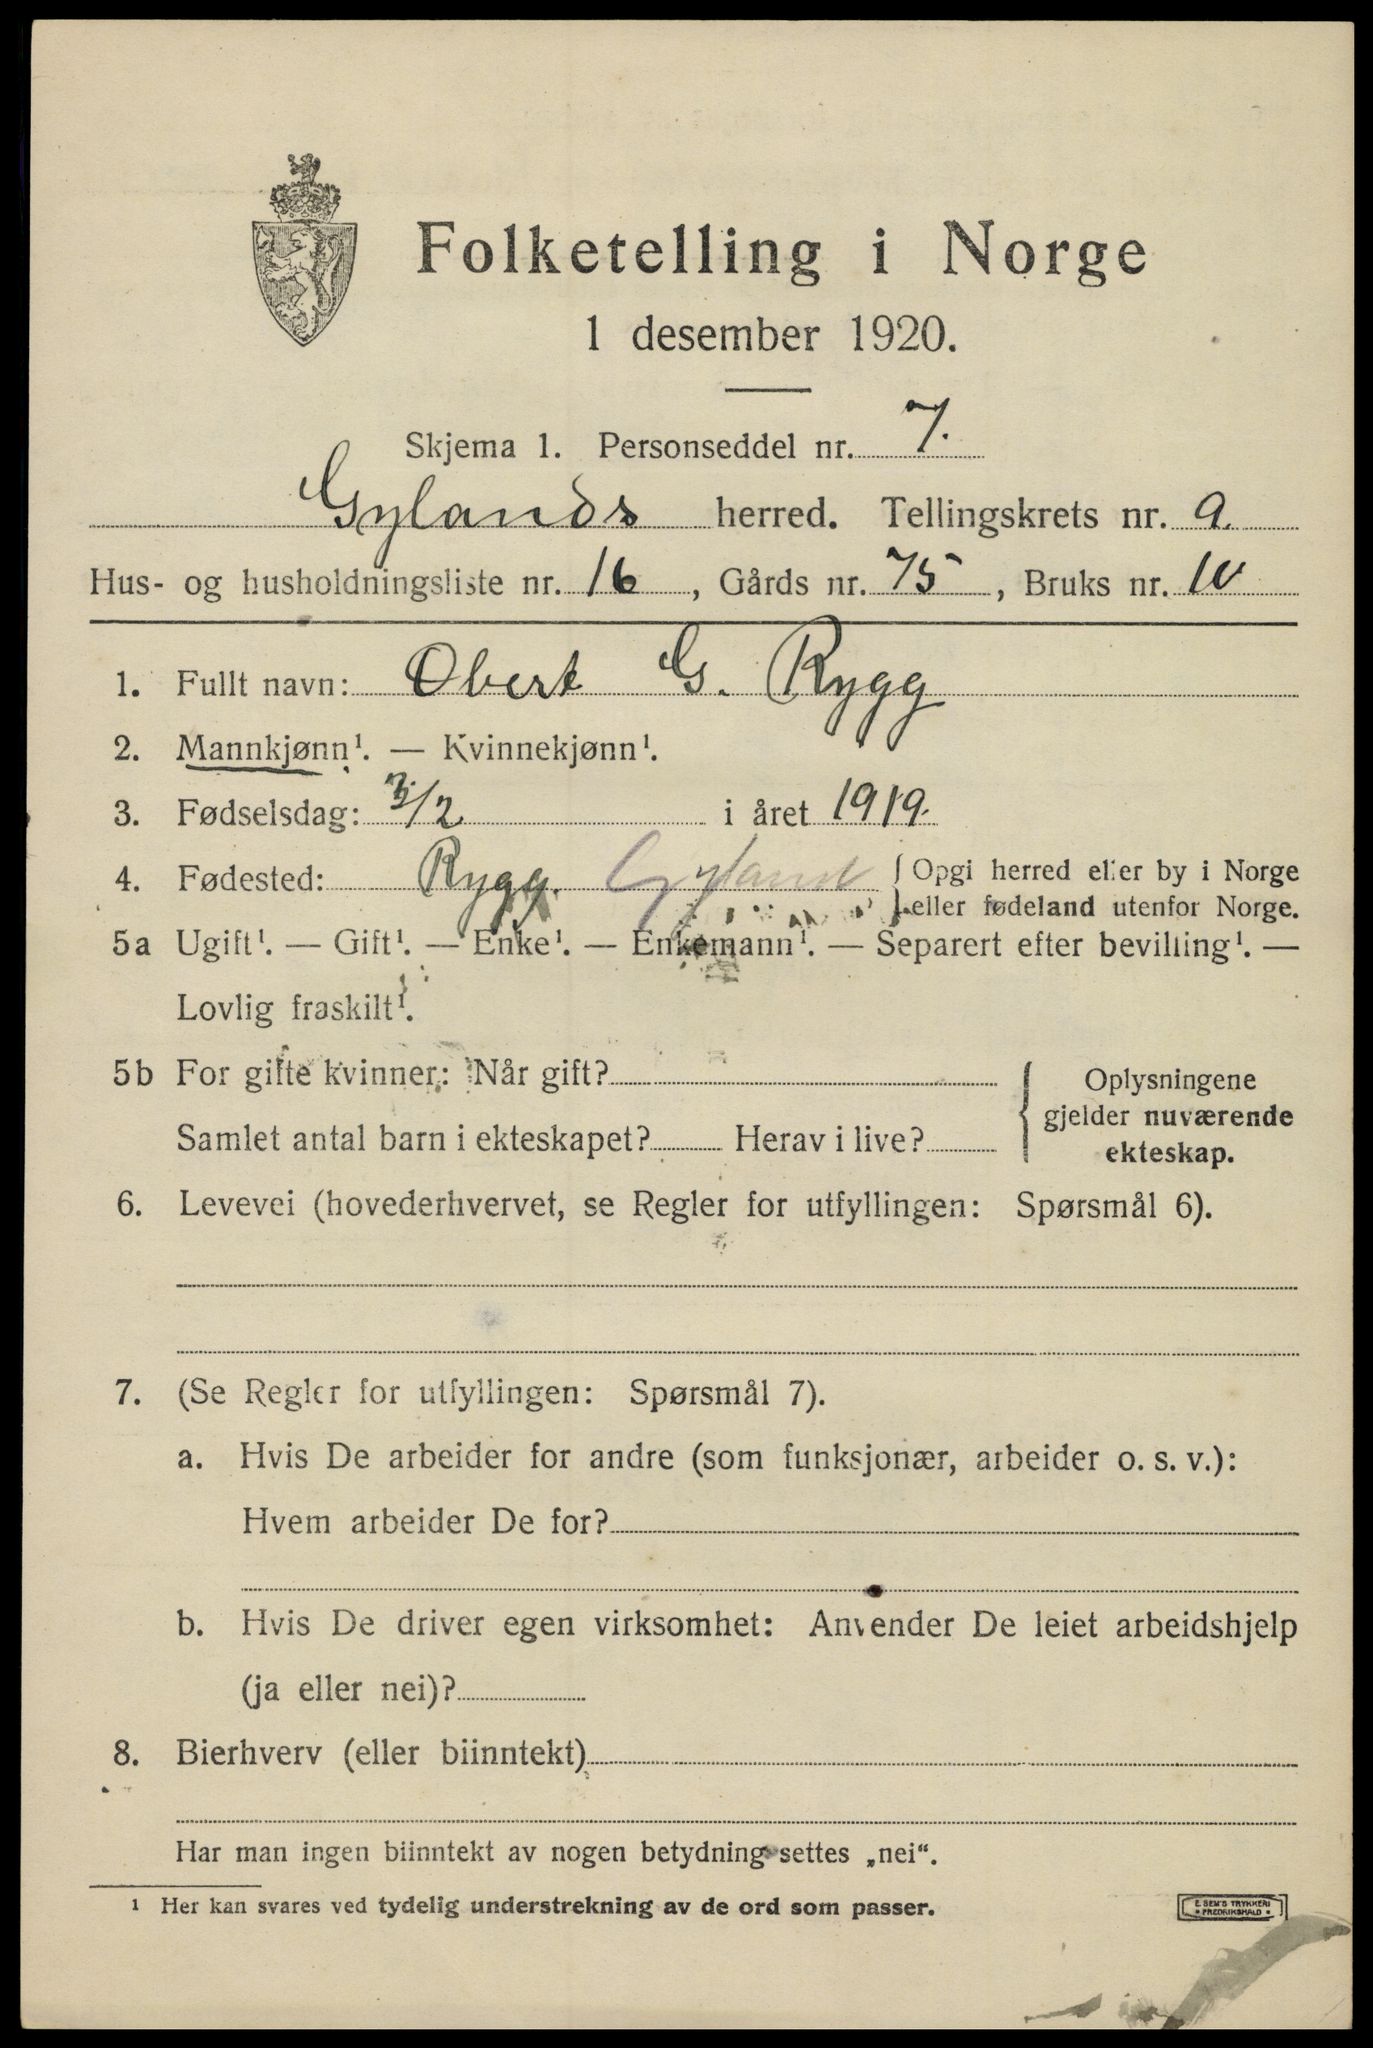 Folketelling i Norge
1 desember 1920.
Skjema 1. Personseddel nr. 7.
Gylands herred. Tellingskrets nr. 9.
Hus- og husholdningsliste nr. 16, Gårds nr. 75, Bruks nr. 10
1. Fullt navn: Obert G. Rygg
2. Mannkjønn¹. — Kvinnekjønn¹.
3. Fødselsdag: 3/2 i året 1919.
4. Fødested: Rygg. Gyland { Opgi herred eller by i Norge
eller fødeland utenfor Norge.
5a Ugift¹. — Gift¹. — Enke¹. — Enkemann¹. — Separert efter bevilling¹. —
Lovlig fraskilt¹.
5b For gifte kvinner: Når gift?
Samlet antal barn i ekteskapet? Herav i live?
{ Oplysningene
gjelder nuværende
ekteskap.
6. Levevei (hovederhvervet, se Regler for utfyllingen: Spørsmål 6).
7. (Se Regler for utfyllingen: Spørsmål 7).
a. Hvis De arbeider for andre (som funksjonær, arbeider o. s. v.):
Hvem arbeider De for?
b. Hvis De driver egen virksomhet: Anvender De leiet arbeidshjelp
(ja eller nei)?
8. Bierhverv (eller biinntekt)
Har man ingen biinntekt av nogen betydning settes „nei“.
¹ Her kan svares ved tydelig understrekning av de ord som passer.
E. SEM'S TRYKKERI
• FREDRIKSHALD •